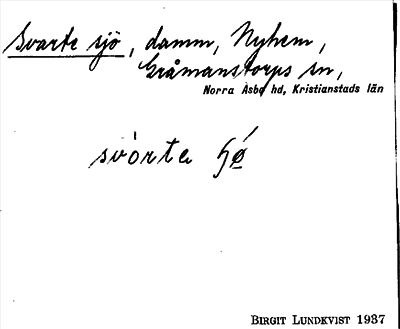 Svarte sjö, damm, Nyhem,
Gråmanstorps sn,
Norra Åsbo hd, Kristianstads län
svȯrte ɧǿ
BIRGIT LUNDKVIST 1937